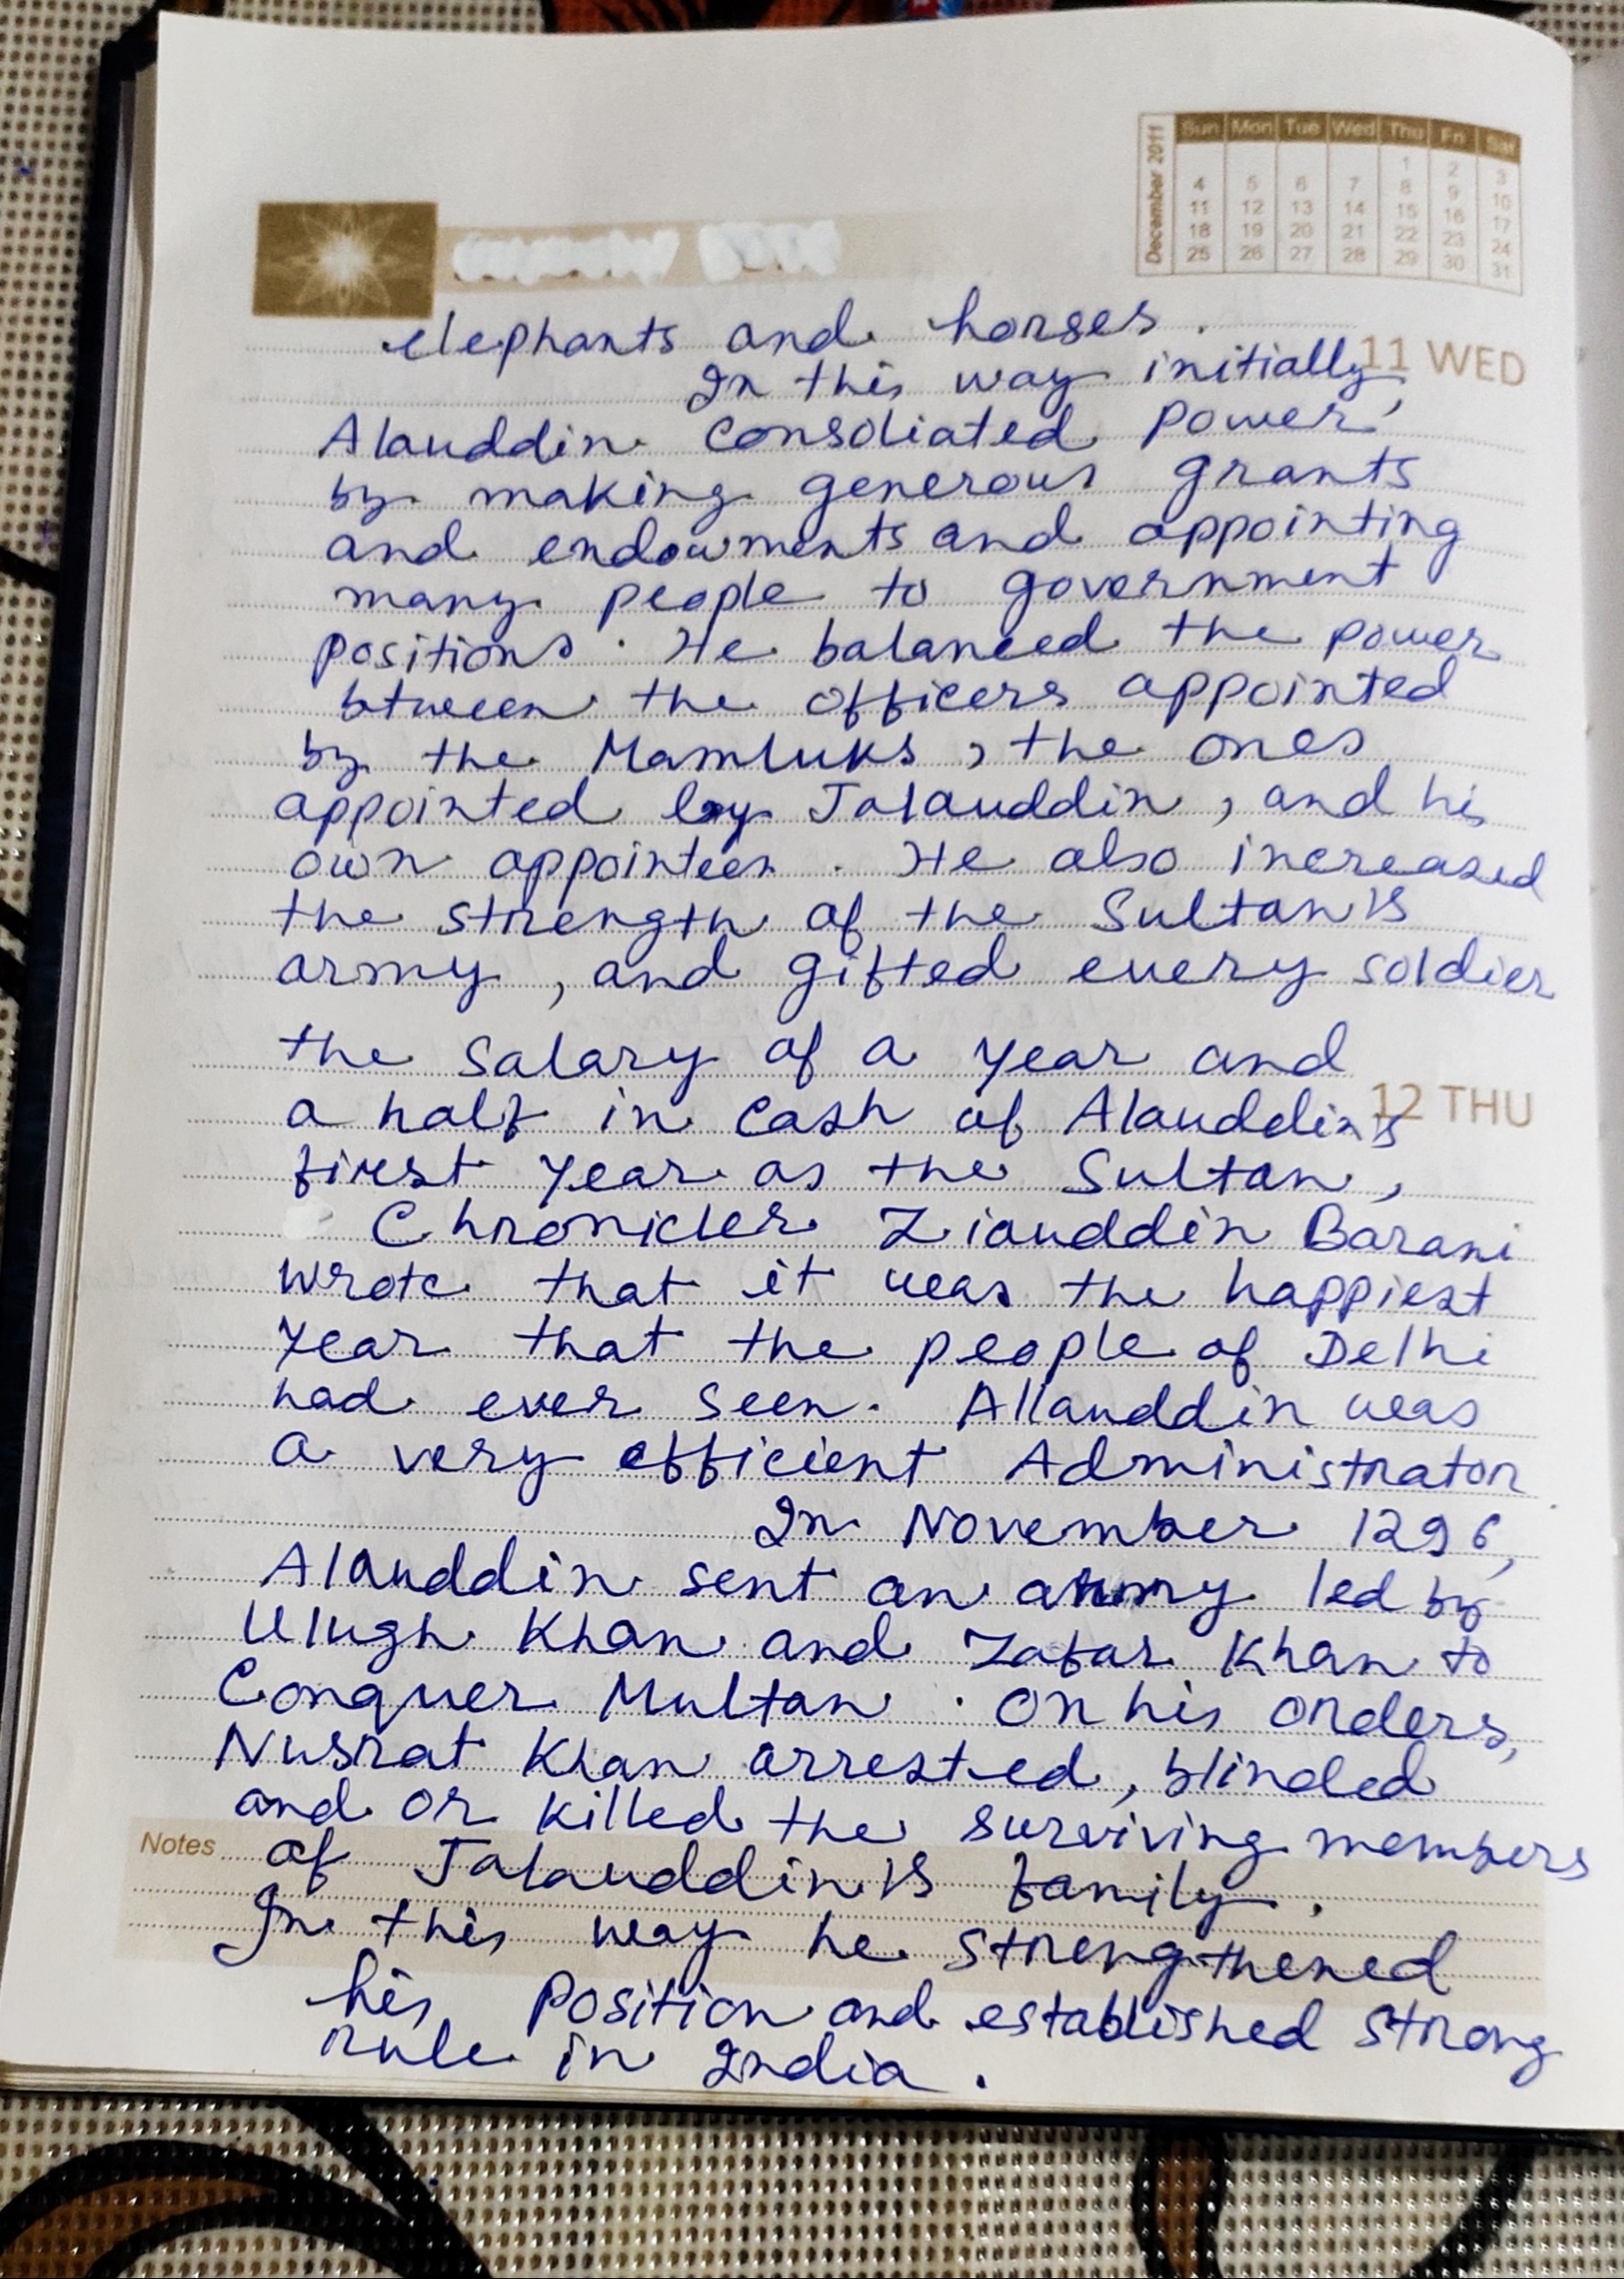 December 2011
Sun Mon Tue Wed Thu Fri Sat
1 2 3
4 5 6 7 8 9 10
11 12 13 14 15 16 17
18 19 20 21 22 23 24
25 26 27 28 29 30 31
elephants and horses.
11 WED
In this way initially,
Alauddin Consoliated power
by making generous grants
and endowments and appointing
many people to government
positions. He balanced the power
btween the officers appointed
by the Mamluks, the ones
appointed by Jalauddin, and his
own appointees. He also increased
the strength of the Sultan's
army, and gifted every soldier
the salary of a year and
12 THU
a half in cash of Alauddin's
first year as the Sultan,
Chronicler Ziauddin Barani
wrote that it was the happiest
year that the people of Delhi
had ever seen. Allauddin was
a very efficient Administrator
In November 1296,
Alauddin sent an army led by
Ulugh Khan and Zafar Khan to
Conquer Multan. On his orders,
Nusrat Khan arrested, blinded
and or killed the surviving members
Notes
of Jalauddin's family.
In this way he strengthened
his position and established strong
rule in India.